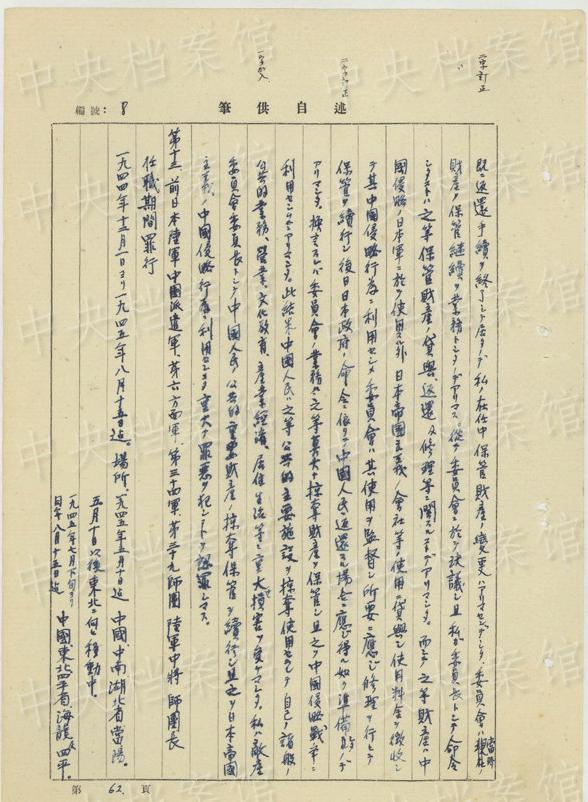 中央档案馆
二字訂正
二字訂正
一字加入
編號: 8
筆供自述
既ニ返還手續ヲ終了シテ居タノデ私ノ在任中保管財産ノ變更ハアリマセンデシタ。委員會ハ
財産ノ保管継續ヲ業務トシタノデアリマス。從テ委員會ニ於テ決議シ且私ガ委員長トシテ命令
シタコトハ之等保管財産ノ貸與、返還及修理等ニ関スルコトデアリマシタ。而シテ之等財産ハ中
國侵略ノ日本軍ニ於テ使用スル外日本帝國主義ノ會社等ノ使用ニ貸與シ使用料金ヲ徴收シ
テ其中國侵略行為ニ利用セシメ委員會ハ其使用ヲ監督シ所要ニ應ジ修理ヲ行ヒテ
保管ヲ續行シ後日日本政府ノ命令ニ依リテ中國人民返還スル場合ニ應ジ得ル如ク準備
アリマシタ。換言スレバ委員會ノ業務ハ之等莫大ナ掠奪財産ヲ保管シ且之ヲ中國侵略戰争ニ
利用セシメタノデアリマス。此結果中國人民ハ之等公共的主要施設ヲ掠奪使用セラレテ自己ノ諸般ノ
公共的業務、營業、文化教育、産業經濟、居住生活等ニ重大損害ヲ受ケマシタ。私ハ敵産
委員會委員長トシテ中國人民ノ公共的重要財産ノ掠奪保管ヲ續行シ且之ヲ日本帝國
主義ノ中國侵略行為ニ利用セシメタ重大ナ罪悪ヲ犯シタコトヲ認罪シマス。
第十三 前日本陸軍中國派遣軍、第六方面軍、第三十四軍、第三十九師團 陸軍中將 師團長
任職期間罪行
一九四四年十二月一日ヨリ一九四五年八月十五日迄。場所、一九四五年五月十日迄 中國、中南湖北省當陽。
五月十日以後東北ニ向ヒ移動中。
一九四五年七月下旬ヨリ
同年八月十五日迄 中國東北四平省、海龍及四平。
第 62. 頁